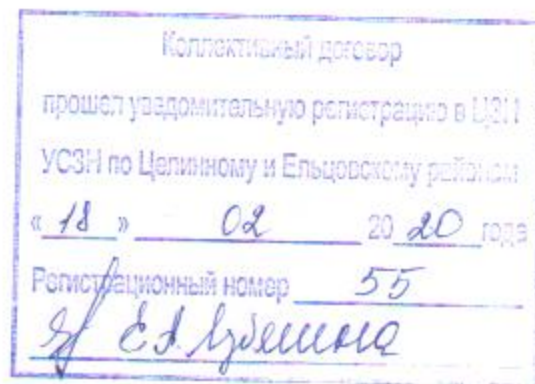 Коллективный договор
прошел уведомительную регистрацию в ЦЗН
УСЗН по Целинному и Ельцовскому районам
« 18 » 02 20 20 года
Регистрационный номер 55
Е.А.